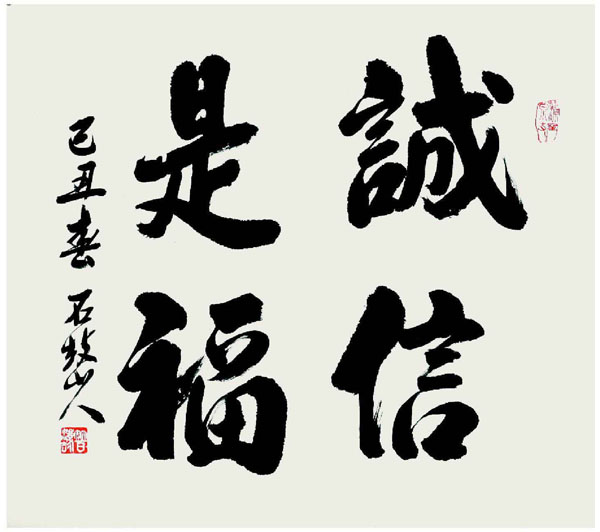 誠信
是福
己丑春 石牧山人